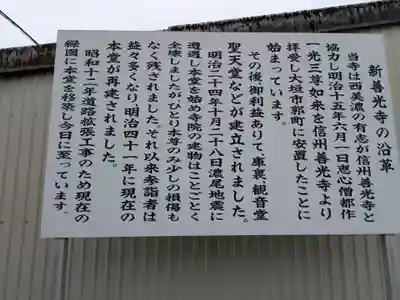 新善光寺の沿革
当寺は西美濃の有志が信州善光寺と
協力し明治十五年六月一日恵心僧都作
一光三尊如来を信州善光寺より
拝受し大垣市郭町に安置したことに
始まっています。
その後御利益ありて、庫裏、観音堂
聖天堂などが建立されました。
明治二十四年十月二十八日濃尾地震に
遭遇し本堂を始め寺院の建物はことごとく
全壊しましたがひとり本尊のみ少しの損傷も
なく残されました。それ以来参詣者は
益々多くなり明治四十一年に現在の
本堂が再建されました。
昭和十二年道路拡張工事のため現在の
緑園に本堂を移築し今日に至っています。